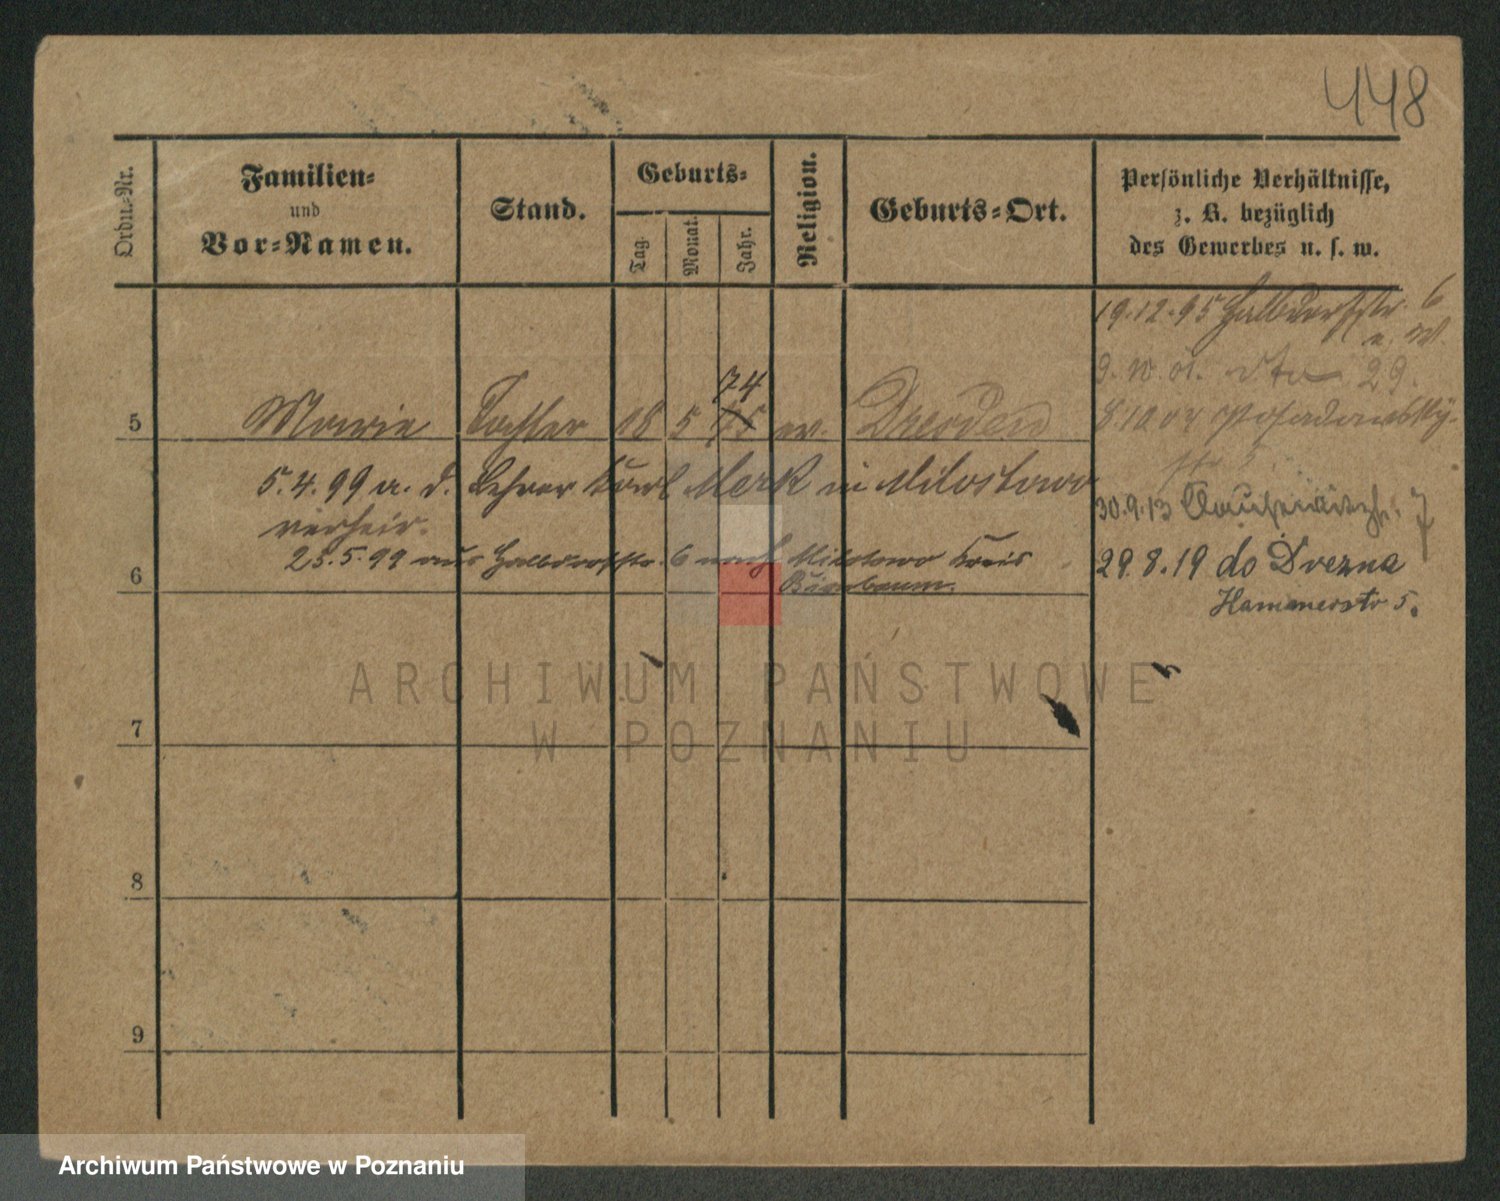 448
Ordn.-Nr.
Familien-
und
Vor-Namen.
Stand.
Geburts-
Tag.
Monat.
Jahr.
Religion.
Geburts-Ort.
Persönliche Verhältnisse,
z. B. bezüglich
des Gewerbes u. s. w.
19.12.95 Halbdorfstr. 6
u. W.
9.10.01. dto 29.
74
5 Marie Tochter 18 5 75 ev. Dresden
8.10.04 Posadowsky-
str 5
5.4.99 a. d. Lehrer Karl Merk in Milostowo
verheir.
30.9.13 7
25.5.99 aus Halbdorfstr. 6 nach Milostowo Kreis
Birnbaum.
6
29.8.19 do Drezna
Hammerstr 5.
7
8
9
ARCHIWUM PAŃSTWOWE
W POZNANIU
Archiwum Państwowe w Poznaniu